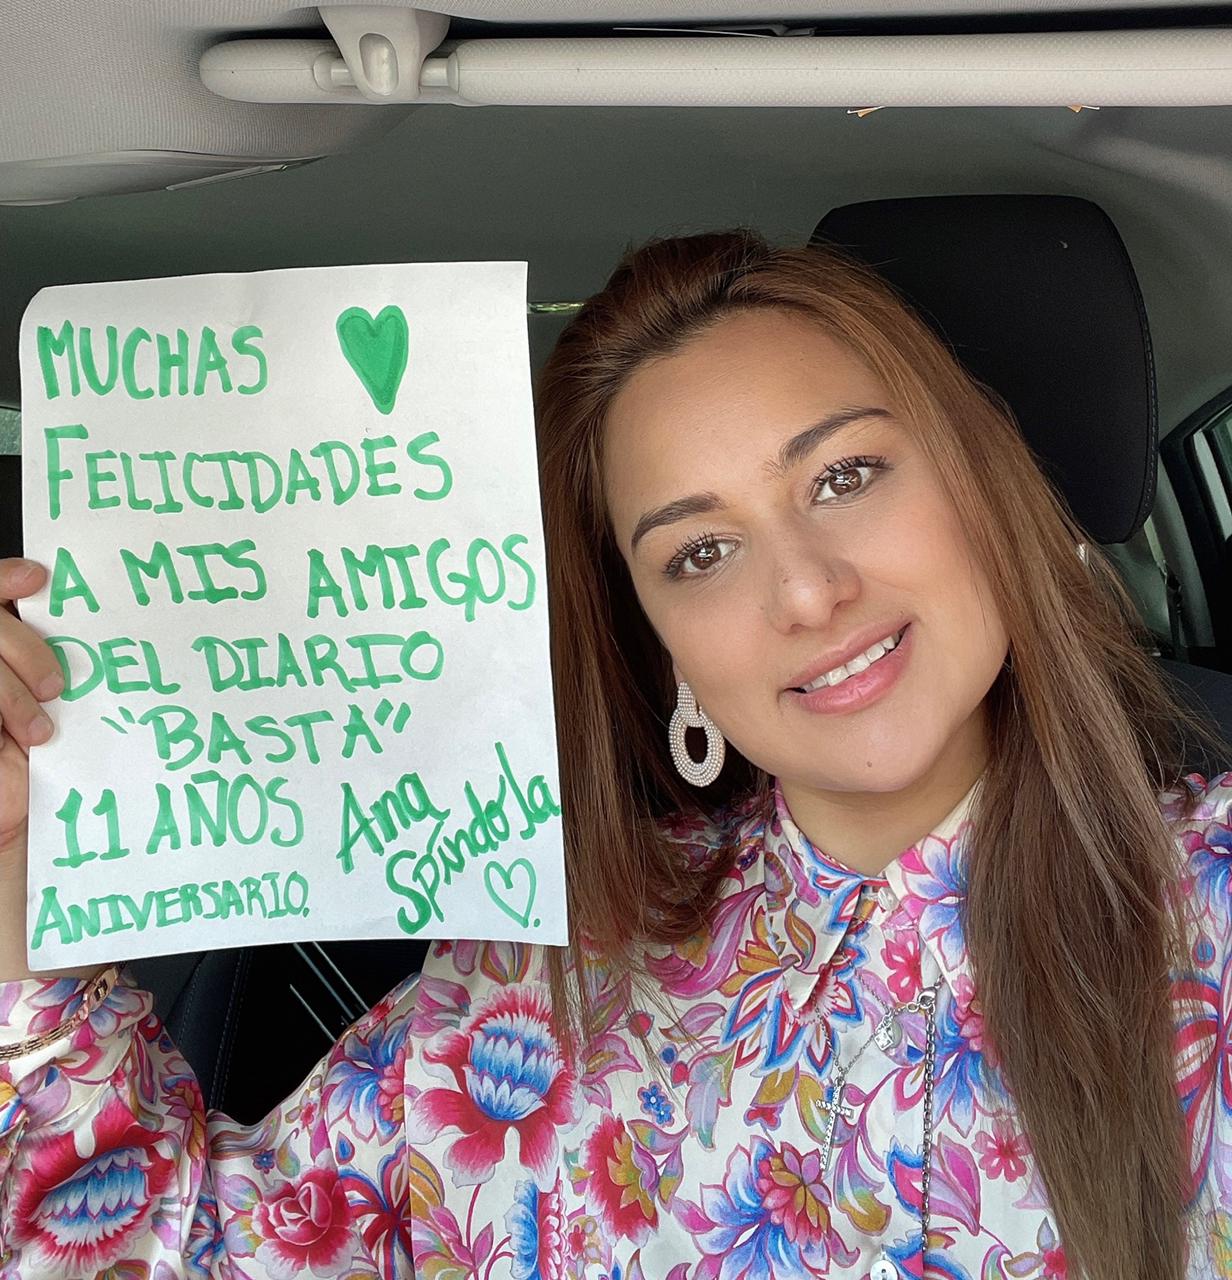 MUCHAS
FELICIDADES
A MIS AMIGOS
DEL DIARIO
"BASTA"
11 AÑOS
ANIVERSARIO.
Ana
Spíndola